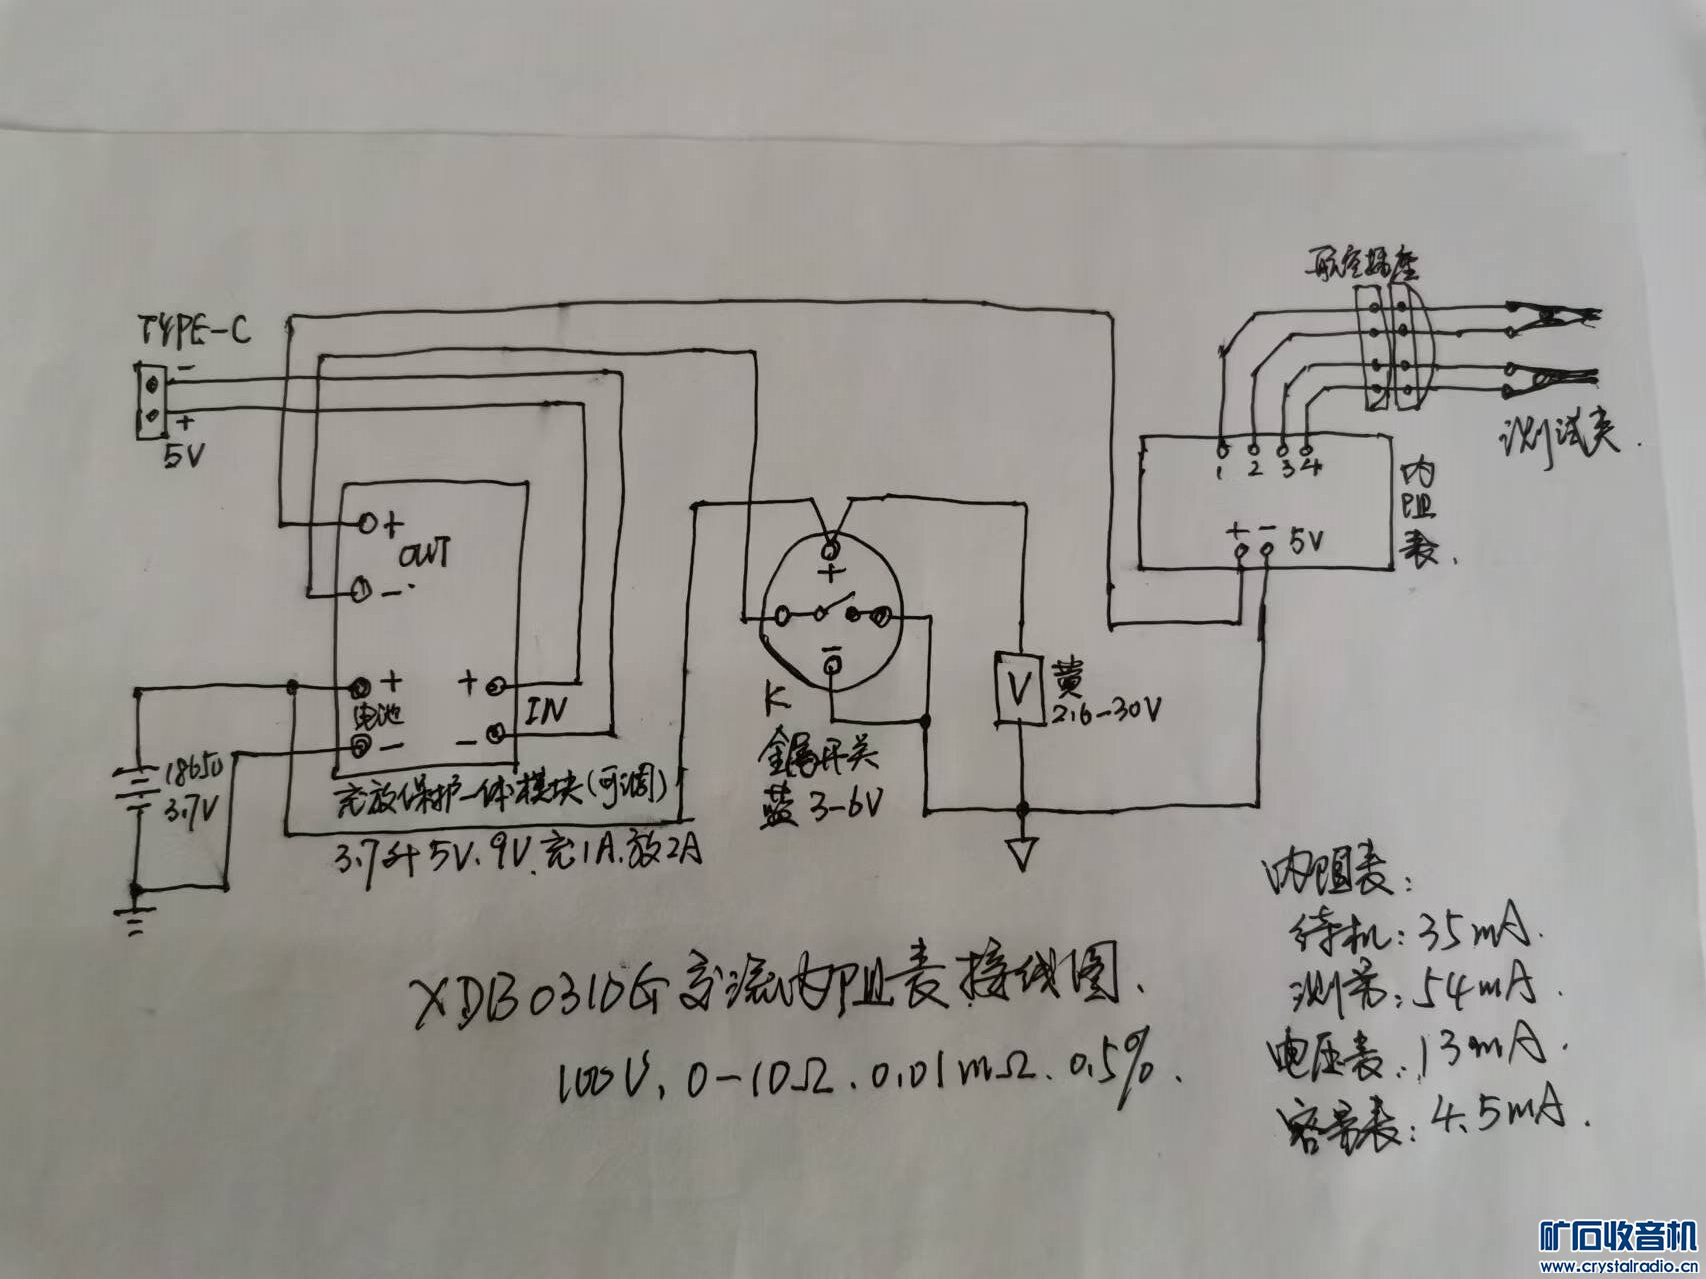 航空插座
TYPE-C
-
+
5V
测试夹.
1 2 3 4
内阻表.
+ - 5V
+
OUT
-
+
电池
-
+
IN
-
+
-
K
金属开关
蓝 3-6V
V
黄
2.6-30V
18650
3.7V
充放保护一体模块(可调)
3.7升5V.9V.充1A.放2A
内阻表:
待机:35mA.
测量:54mA.
电压表:13mA.
容量表:4.5mA.
XDB0310G交流内阻表接线图.
100V.0-10Ω.0.01mΩ.0.5%.
矿石收音机
www.crystalradio.cn